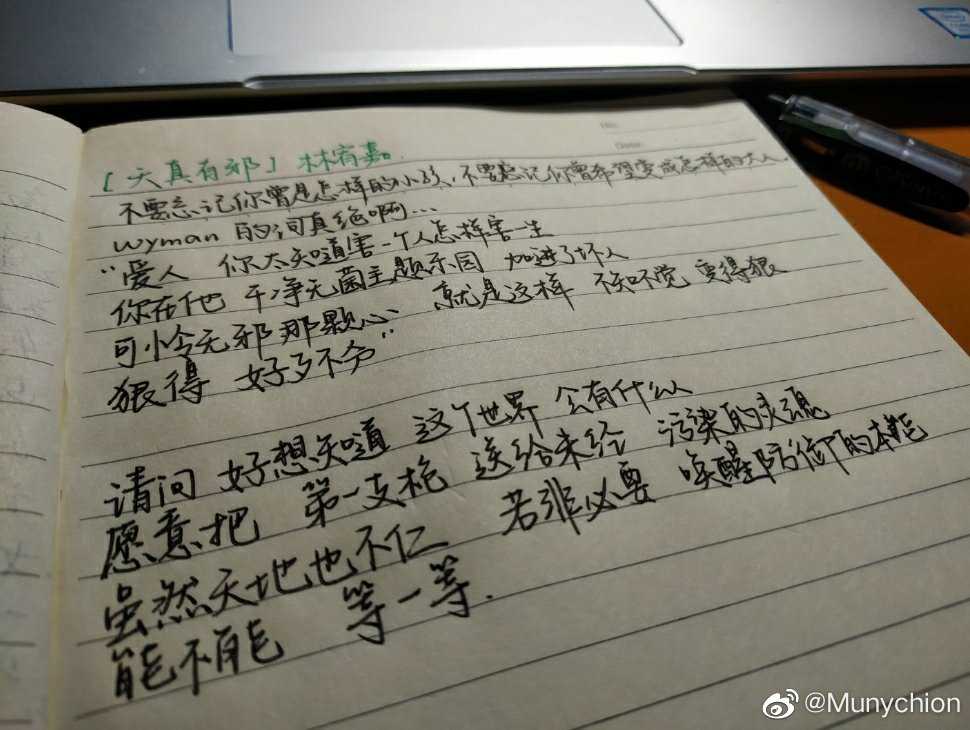 「天真有邪」林宥嘉.
不要忘记你曾是怎样的小孩,不要忘记你曾希望变成怎样的大人.
wyman 的词真绝啊...
“爱人 你太知道害一个人怎样害一生
你在他 干净无菌主题乐园 加进了坏人
可怜无邪那颗心 就是这样 不知不觉 变得狠
狠得 好歹不分”
请问 好想知道 这个世界 会有什么
愿意把 第一支枪 送给未给 污染的灵魂
虽然天地也不仁 若非必要 唤醒防御的本能
能不能 等一等.
@Munychion